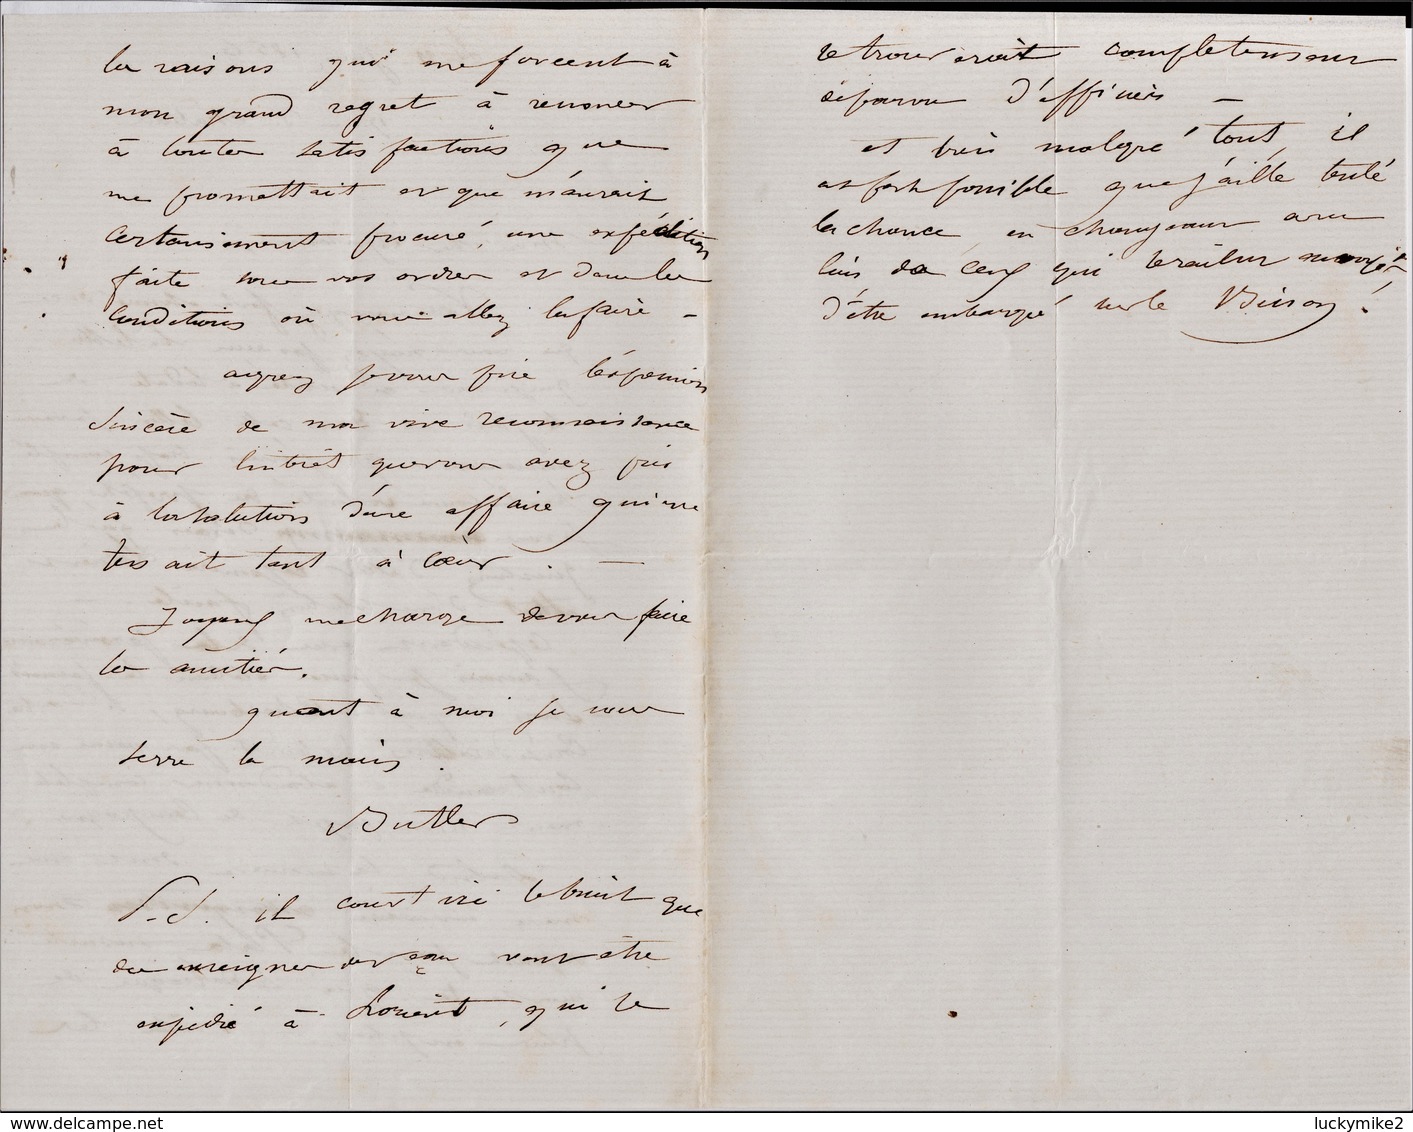 les raisons qui me forcent à
mon grand regret à renoncer
à toutes satisfactions que
me promettait et que m'aurait
certainement procuré, une expédition
faite sous vos ordres et dans les
conditions où vous allez la faire –
agréez je vous prie l'expression
sincère de ma vive reconnaissance
pour l'intérêt que vous avez pris
à la solution d'une affaire qui me
tenait tant à cœur. —
me charge de vous faire
les amitiés.
quant à moi je vous
serre la main.
Butler
P.S. il court ici le bruit que
des enseignes de vont être
expédié à Lorient, qui se
trouverait complètement
dépourvu d'officiers —
et bien malgré tout il
est fort possible que j'aille tenté
la chance en changeant avec
l'un de ceux qui
d'être embarqué sur le !
luckymike2
www.delcampe.net